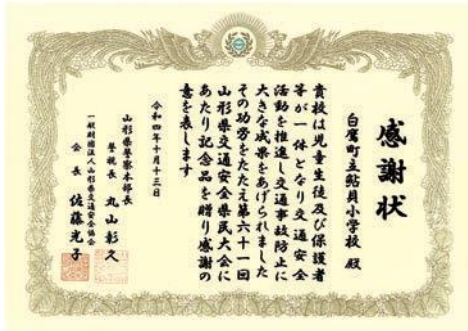 感謝状
白鷹町立鮎貝小学校 殿
貴校は児童生徒及び保護者
等が一体となり交通安全
活動を推進し交通事故防止に
大きな成果をあげられました
その功労をたたえ第六十一回
山形県交通安全県民大会に
あたり記念品を贈り感謝の
意を表します
令和四年十月十三日
山形県警察本部長
警視長 丸山彰久
一般財団法人山形県交通安全協会
会長 佐藤光子